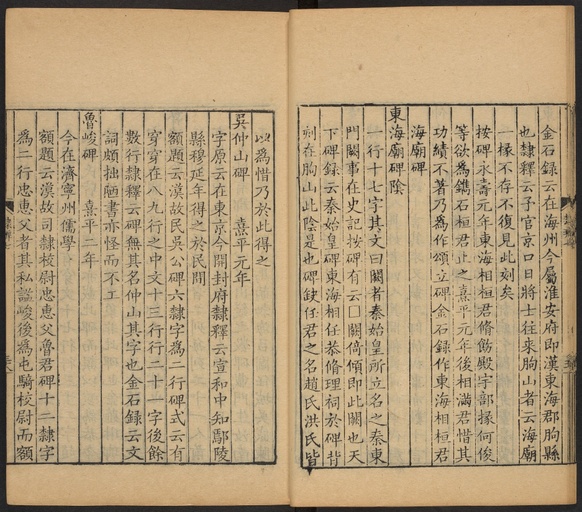 金石録云在海州今屬淮安府即漢東海郡朐縣
也隸釋云予官京口日將士往來朐山者云海廟
一椽不存不復見此刻矣
按碑永壽元年東海相桓君脩飭殿宇部掾何俊
等欲為鐫石桓君止之熹平元年後相滿君惜其
功績不著乃為作頌立碑金石録作東海相桓君
海廟碑
東海廟碑陰
一行十七字其文曰闕者秦始皇所立名之秦東
門闕事在史記按碑有云□闕倚傾即此闕也天
下碑録云秦始皇碑東海相任恭脩理祠於碑背
刻在朐山此陰是也碑缺任君之名趙氏洪氏皆
以為惜乃於此得之
吳仲山碑 熹平元年
字原云在東京今開封府隸釋云宣和中知鄢陵
縣穆延年得之於民間
額題云漢故民吳公碑六隸字為二行碑式云有
穿穿在八九行之中文十三行行二十一字後餘
數行隸釋云碑無其名仲山其字也金石録云文
詞頗拙陋書亦怪而不工
魯峻碑 熹平二年
今在濟寧州儒學
額題云漢故司隸校尉忠惠父魯君碑十二隸字
為二行忠惠父者其私謚峻後為屯騎校尉而額